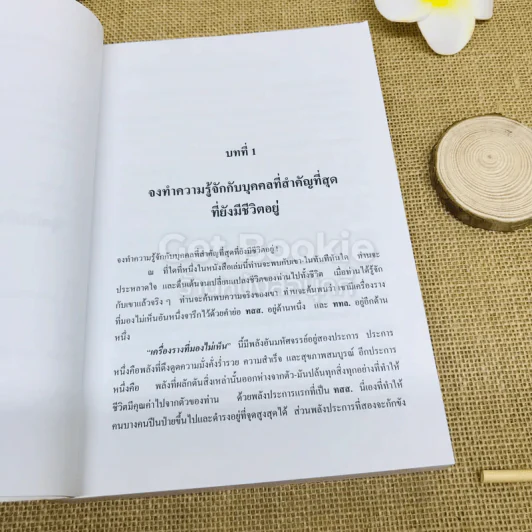 บทที่ 1
จงทำความรู้จักกับบุคคลที่สำคัญที่สุด
ที่ยังมีชีวิตอยู่
จงทำความรู้จักกับบุคคลที่สำคัญที่สุดที่ยังมีชีวิตอยู่!
ณ ที่ใดที่หนึ่งในหนังสือเล่มนี้ท่านจะพบกับเขา-ในทันทีทันใด ท่านจะ
ประหลาดใจ และตื่นเต้นและเปลี่ยนแปลงชีวิตของท่านไปทั้งชีวิต เมื่อท่านได้รู้จัก
กับเขาแล้วจริง ๆ ท่านจะค้นพบความจริงของเขา ท่านจะค้นพบว่า เขามีเครื่องราง
ที่มองไม่เห็นอันหนึ่งจารึกไว้ด้วยคำย่อ ทสส. อยู่ด้านหนึ่ง และ ททล. อยู่อีกด้าน
หนึ่ง
"เครื่องรางที่มองไม่เห็น" นี้มีพลังอันมหัศจรรย์อยู่สองประการ ประการ
หนึ่งคือพลังที่ดึงดูดความมั่งคั่งร่ำรวย ความสำเร็จ และสุขภาพสมบูรณ์ อีกประการ
หนึ่งคือ พลังที่ผลักดันสิ่งเหล่านั้นออกห่างจากตัว-มันปล้นทุกสิ่งทุกอย่างที่ทำให้
ชีวิตมีคุณค่าไปจากตัวของท่าน ด้วยพลังประการแรกที่เป็น ทสส. นี่เองที่ทำให้
คนบางคนปีนป่ายขึ้นไปและดำรงอยู่ที่จุดสูงสุดได้ ส่วนพลังประการที่สองจะกักขัง
Get Bookie